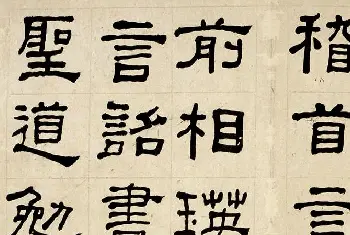 稽首言
前相瑛
言詔書
聖道勉